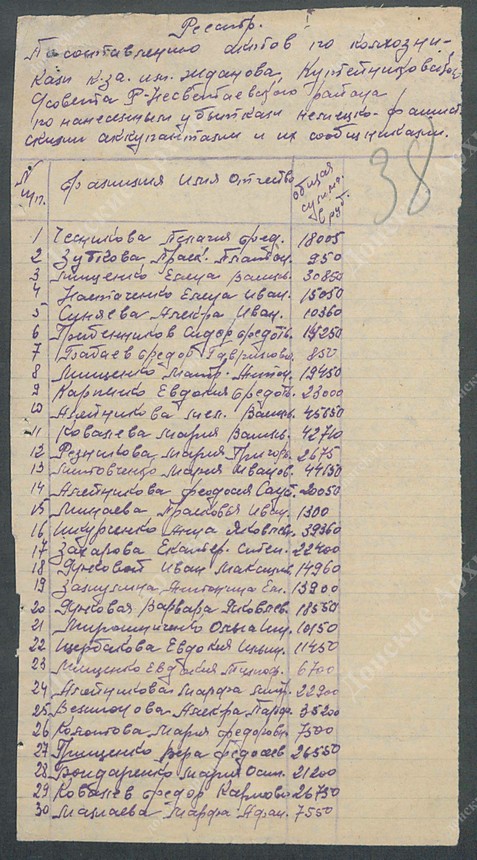 Реестр.
По составлению актов по колхозни-
кам к-за. им. Жданова, Куртейниковског
с/совета Р-Несветаевского района
по нанесенным убыткам немецко-фашист
скими аккупантами и их сообщниками.
38
№ п/п. Фамилия Имя Отчество общая сумма. в руб.
1 Чеснокова Пелагия Фед. 18005
2 Зуткова Праск. 950
3 Мищенко Елица Василь. 30850
4 Елица Иван. 15050
5 Суняева Алекра Иван. 10360
6 Гребенников Сидор Федотв.
7 Федор Гаврилович 850
8 Мищенко Матр. Антон. 19450
9 Карпенко Евдокия Федотв. 23000
10 Алейникова Василь. 45650
11 Ковалева Мария Василь. 42710
12 Резникова Мария Григорь. 2675
13 Литовченко Мария Иванов. 44130
14 Алейникова Феодосия Савб. 20050
15 Прасковья Иван. 1300
16 Шкурченко Анна Яковлев. 39360
17 Захарова Екатер. Степ. 22400
18 Янковой Иван Максим. 14960
19 Антонина Ем. 13900
20 Янковая Варвара Яковлев. 18550
21 Мирошниченко Ольга 10150
22 Щербакова Евдокия Ильин. 11450
23 Мищенко Евдокия Тимоф. 6700
24 Алейникова Марфа Мит. 22900
25 Алекра Парф. 35200
26 Мария Федоровн. 7500
27 Грищенко Вера Федосеев 26550
28 Бондаренко Мария Осип. 21200
29 Ковалев Федор Карпович 26750
30 Малаева Марфа Афан. 7550